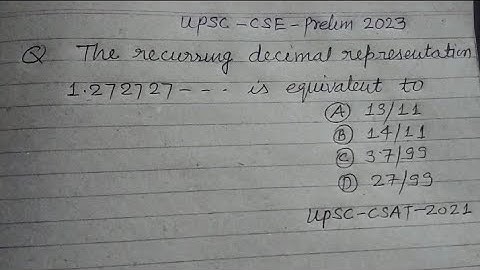 UPSC-CSE-Prelim 2023
Q The recurring decimal representation
1.272727--- is equivalent to
A 13/11
B 14/11
C 37/99
D 27/99
UPSC-CSAT-2021